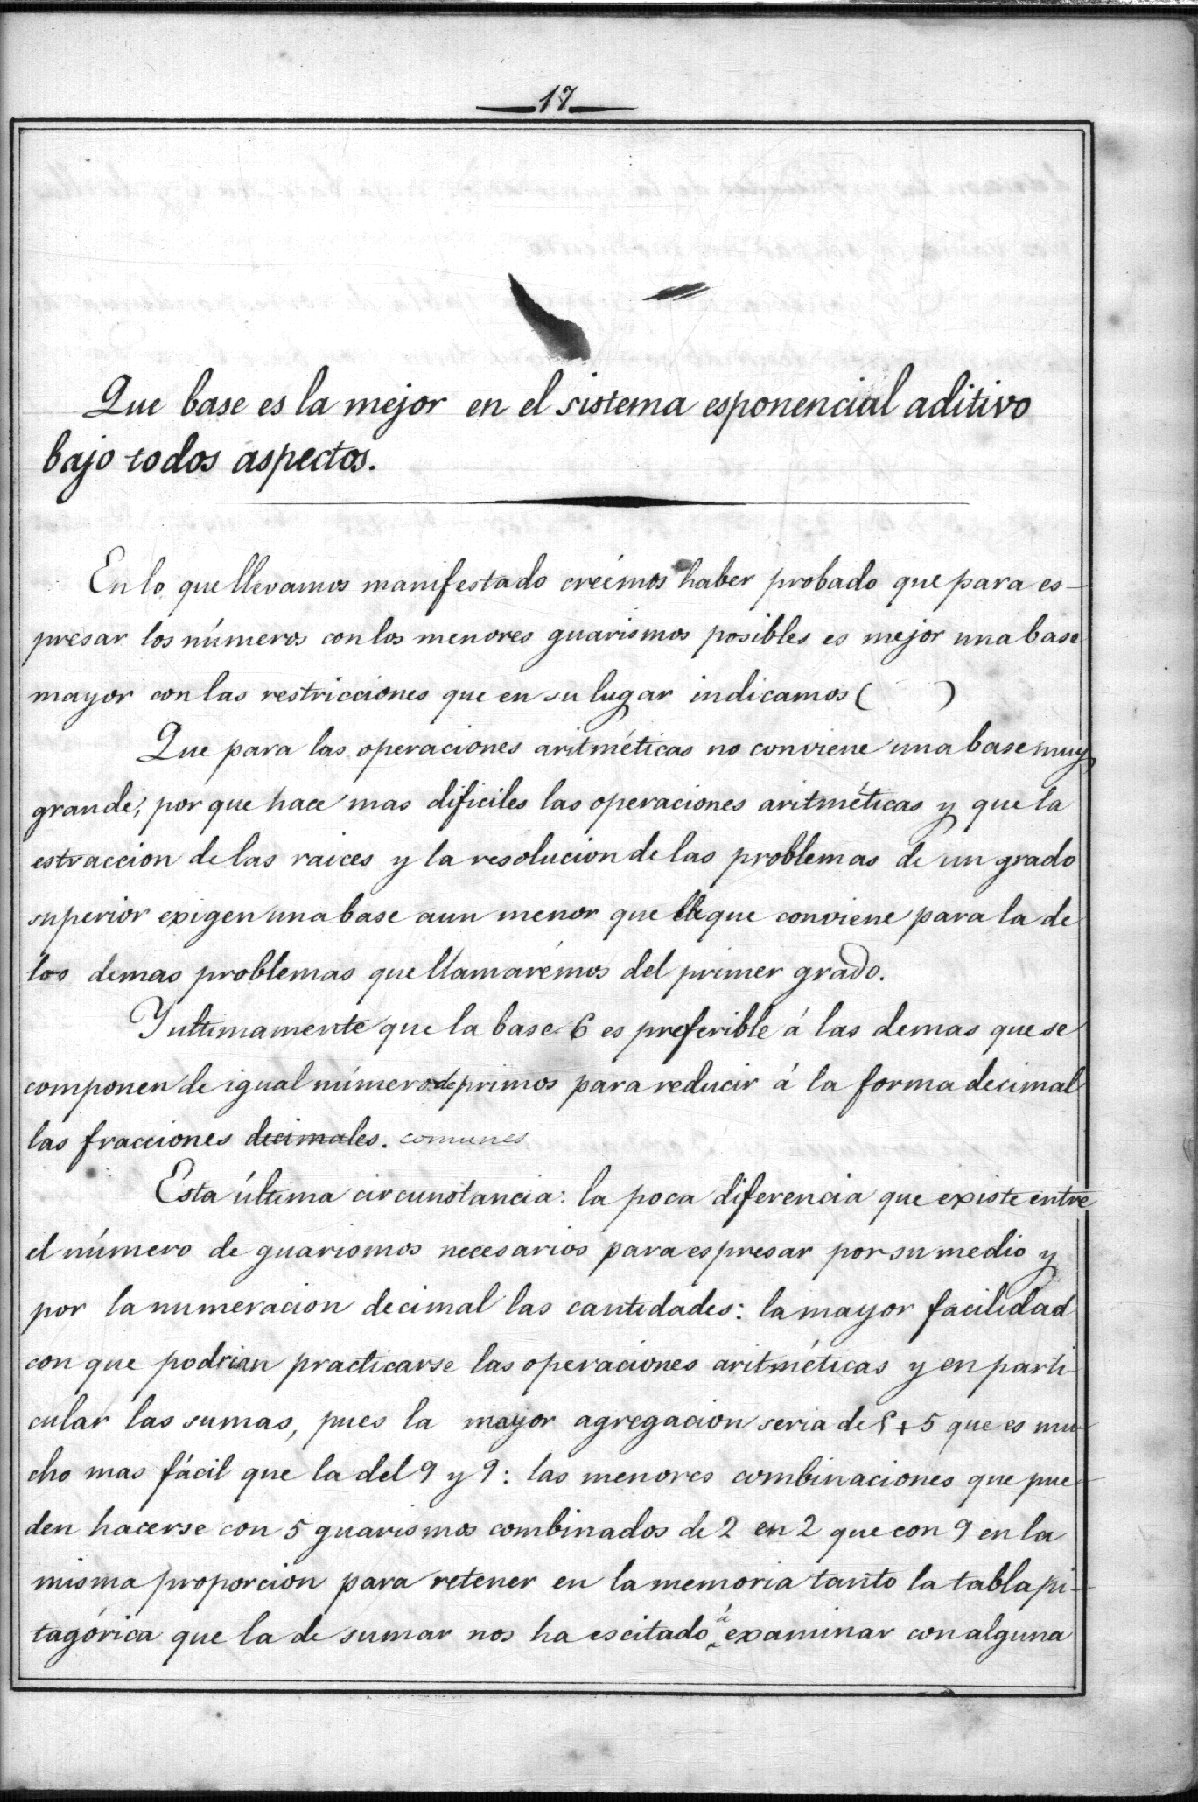 17
Que base es la mejor en el sistema esponencial aditivo
bajo todos aspectos.
En lo que llevamos manifestado creémos haber probado que para es-
presar los números con los menores guarismos posibles es mejor una base
mayor con las restricciones que en su lugar indicamos ( )
Que para las operaciones aritméticas no conviene una base muy
grande; por que hace mas dificiles las operaciones aritméticas y que la
estraccion de las raices y la resolucion de las problemas de un grado
superior exigen una base aun menor que la que conviene para la de
los demas problemas que llamarémos del primer grado.
Y ultimamente que la base 6 es preferible á las demas que se
componen de igual número de primos para reducir á la forma decimal
las fracciones decimales. comunes
Esta última circunstancia: la poca diferencia que existe entre
el número de guarismos necesarios para espresar por su medio y
por la numeracion decimal las cantidades: la mayor facilidad
con que podrian practicarse las operaciones aritméticas y en parti
cular las sumas, pues la mayor agregacion seria de 5 + 5 que es mu-
cho mas fácil que la del 9 y 9: las menores combinaciones que pue-
den hacerse con 5 guarismos combinados de 2 en 2 que con 9 en la
misma proporcion para retener en la memoria tanto la tabla pi-
tagórica que la de sumar nos ha escitado á examinar con alguna